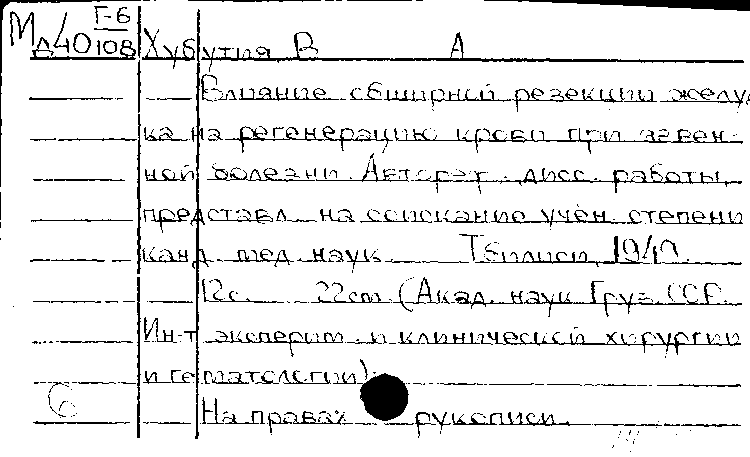 Г-6
Мд40108 Хубутия, В А
Влияние обширной резекции желуд
ка на регенерацию крови при язвен-
ной болезни. Автореф. дисс. работы,
представл. на соискание учен. степени
канд. мед. наук. Тбилиси,
12с. 22см. (Акад. наук Груз. ССР.
Ин-т эксперим. и клинической хирургии
и гематологии).
6
На правах рукописи.